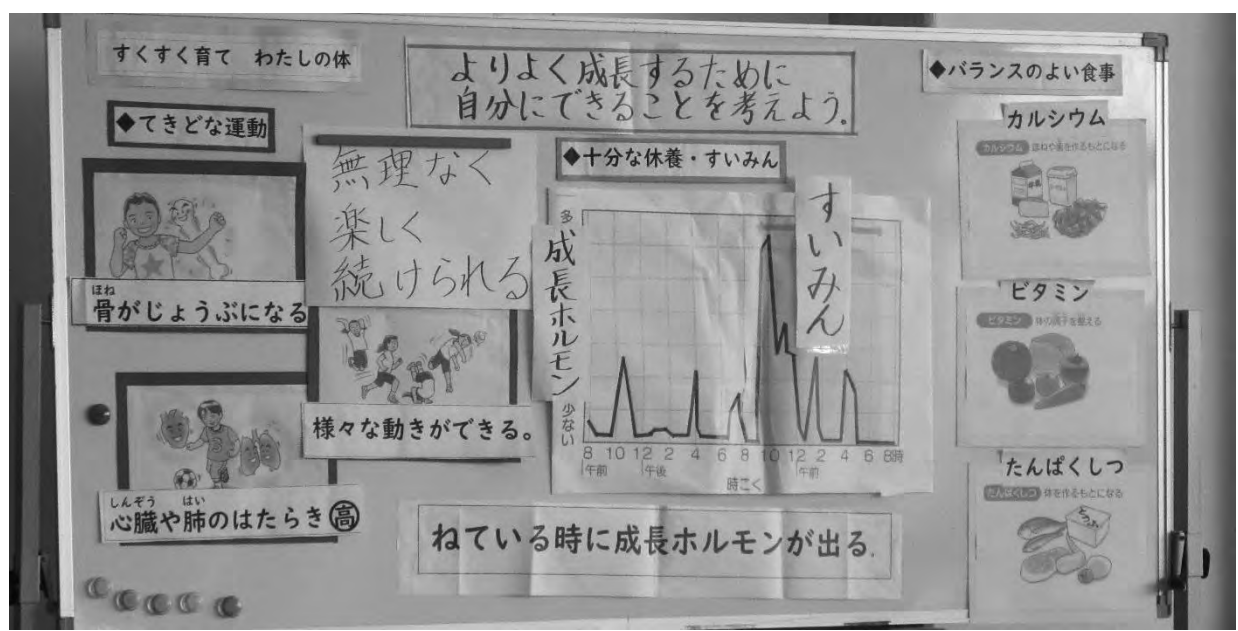 すくすく育て わたしの体
よりよく成長するために
自分にできることを考えよう。
◆てきどな運動
ほね
骨がじょうぶになる
しんぞう はい
心臓や肺のはたらき高
無理なく
楽しく
続けられる
様々な動きができる。
◆十分な休養・すいみん
すいみん
多
成長ホルモン
少ない
8 10 12 2 4 6 8 10 12 2 4 6 8時
午前 午後 午前
時こく
ねている時に成長ホルモンが出る。
◆バランスのよい食事
カルシウム
カルシウム ほねや歯を作るもとになる
ビタミン
ビタミン 体の調子を整える
たんぱくしつ
たんぱくしつ 体を作るもとになる
とうふ